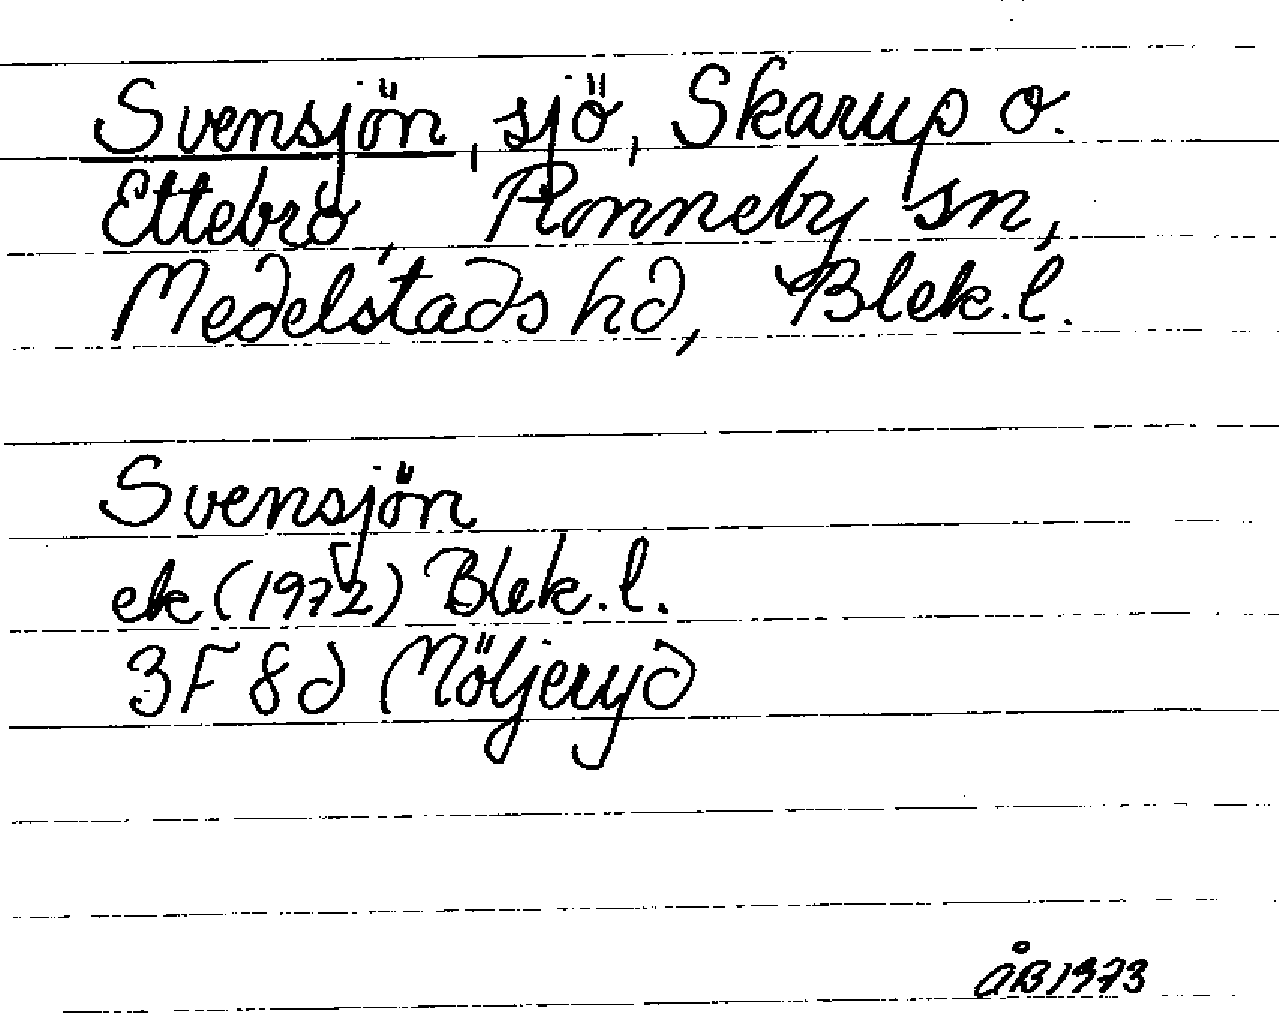 Svensjön, sjö, Skarup o.
Ettebro, Ronneby sn,
Medelstads hd, Blek.l.
Svensjön
ek (1972) Blek.l.
3F 8d Möljeryd
ÅB 1973